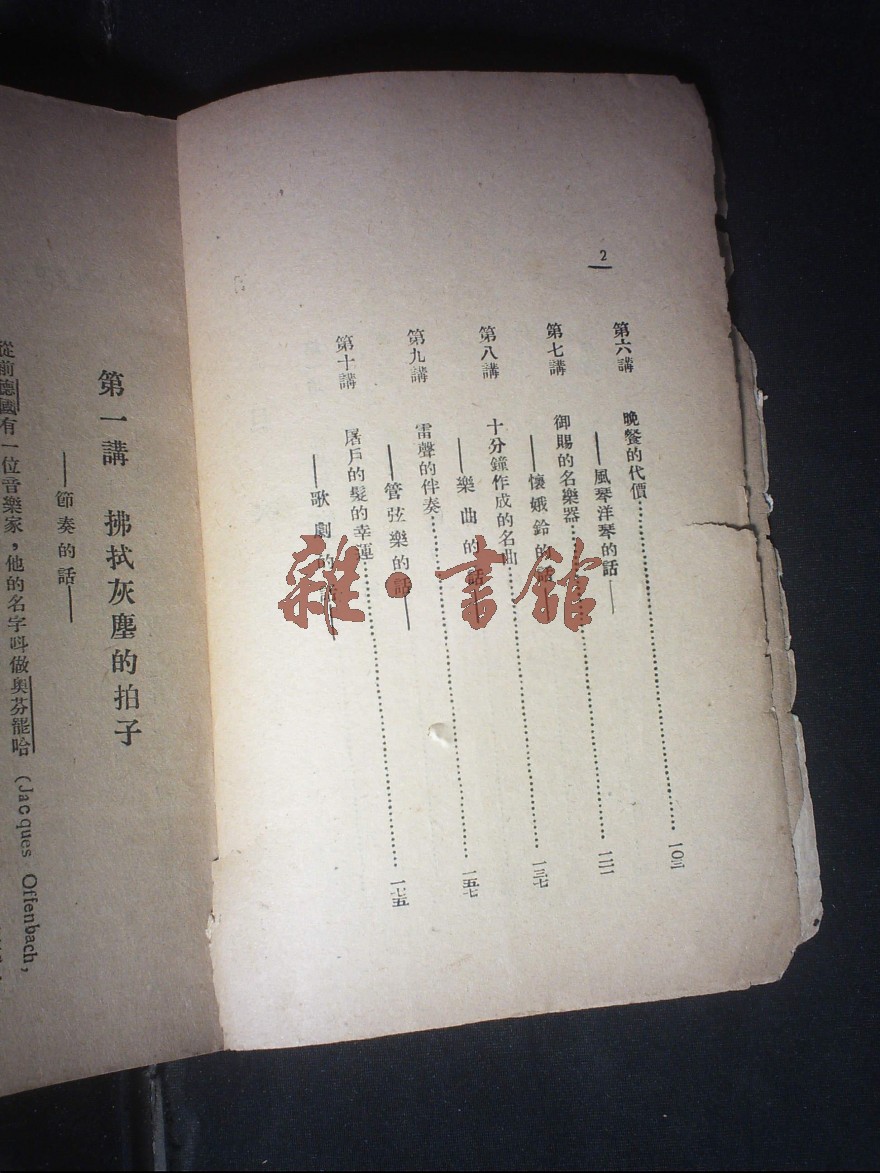 2
第六講 晚餐的代價……………………一〇三
——風琴洋琴的話——
第七講 御賜的名樂器……………………一二一
——懷娥鈴的話——
第八講 十分鐘作成的名曲……………………一三七
——樂曲的話——
第九講 雷聲的伴奏……………………一五七
——管弦樂的話——
第十講 屠戶的髮的幸運……………………一七五
——歌劇的話——
第一講 拂拭灰塵的拍子
——節奏的話——
從前德國有一位音樂家，他的名字呌做奧芬罷哈 (Jacques Offenbach,
雜·書館